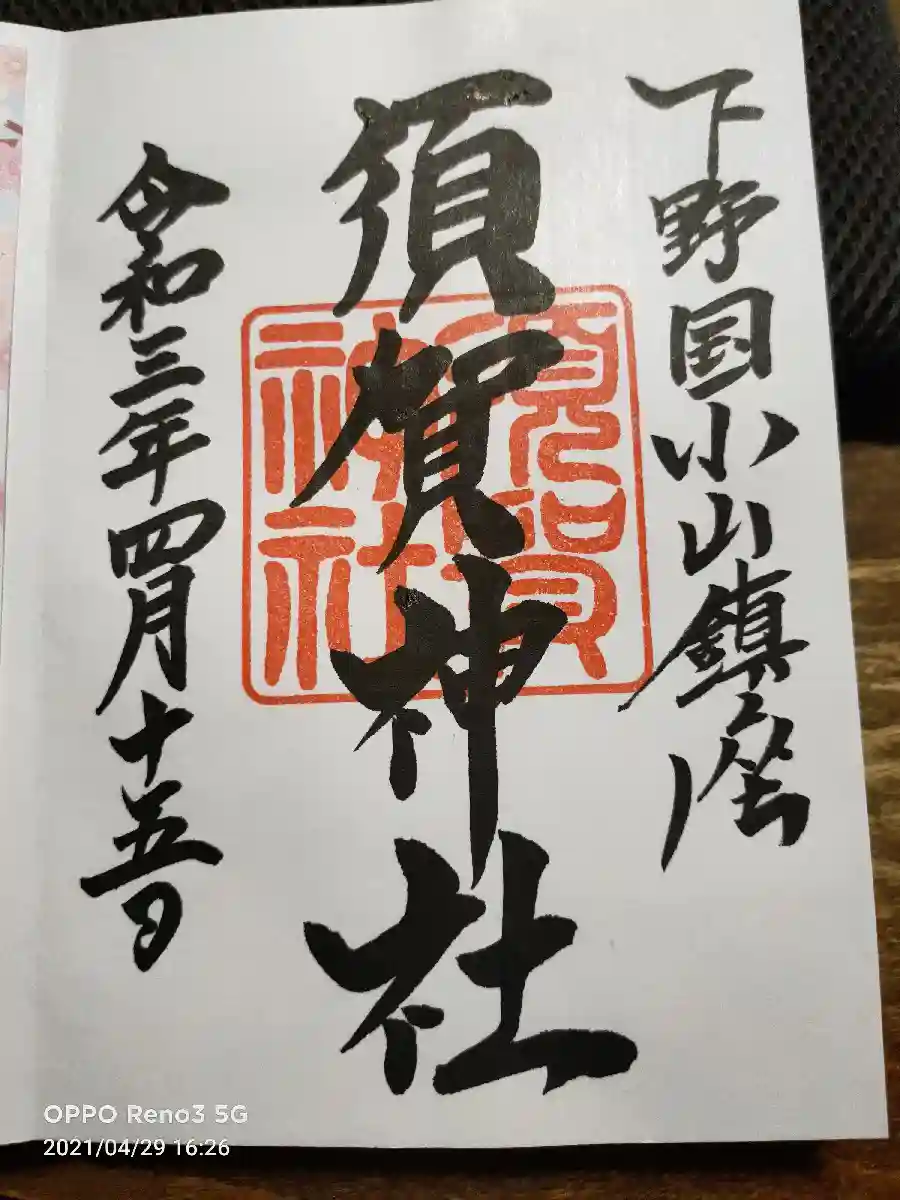 下野国小山鎮座
須賀神社
須賀神社
令和三年四月十五日
OPPO Reno3 5G
2021/04/29 16:26